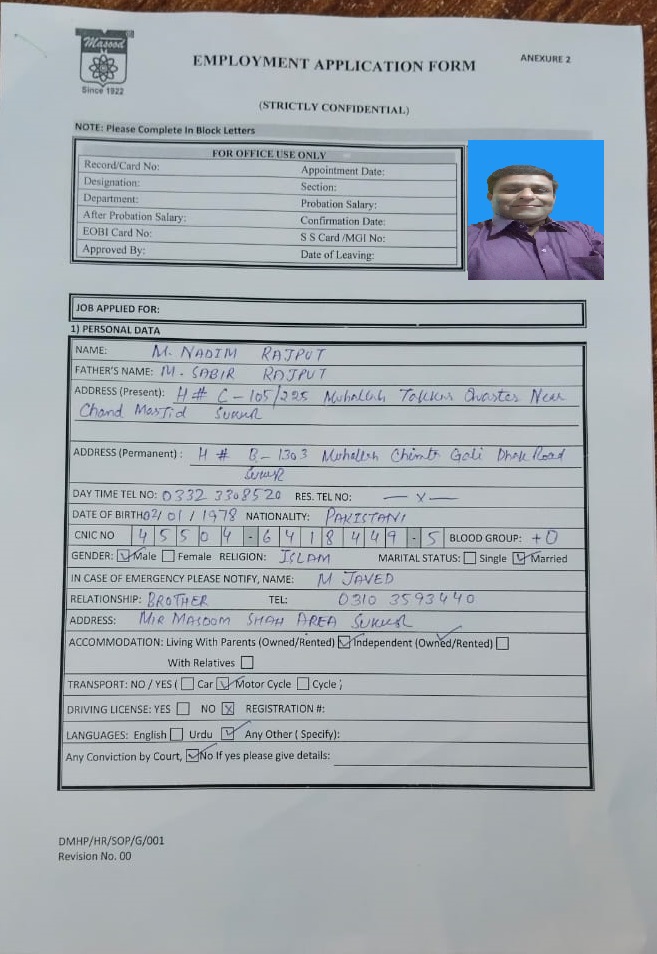 Masood
Since 1922
EMPLOYMENT APPLICATION FORM
ANEXURE 2
(STRICTLY CONFIDENTIAL)
NOTE: Please Complete In Block Letters
FOR OFFICE USE ONLY
Record/Card No: Appointment Date:
Designation: Section:
Department: Probation Salary:
After Probation Salary: Confirmation Date:
EOBI Card No: S S Card /MGI No:
Approved By: Date of Leaving:
JOB APPLIED FOR:
1) PERSONAL DATA
NAME: M. NADIM RAJPUT
FATHER'S NAME: M. SABIR RAJPUT
ADDRESS (Present): H # C-105/225 Muhallah Near
Chand Masjid Sukkur
ADDRESS (Permanent) : H # B-1303 Muhallah Gali Road
Sukkur
DAY TIME TEL NO: 0332 3308520 RES. TEL NO: — x —
DATE OF BIRTH 02/ 01 / 1978 NATIONALITY: PAKISTANI
CNIC NO 45504-6418449-5 BLOOD GROUP: +O
GENDER: Male Female RELIGION: ISLAM MARITAL STATUS: Single Married
IN CASE OF EMERGENCY PLEASE NOTIFY, NAME: M JAVED
RELATIONSHIP: BROTHER TEL: 0310 3593440
ADDRESS: MIR MASOOM SHAH AREA SUKKUR
ACCOMMODATION: Living With Parents (Owned/Rented) Independent (Owned/Rented)
With Relatives
TRANSPORT: NO / YES ( Car Motor Cycle Cycle ;
DRIVING LICENSE: YES NO X REGISTRATION #:
LANGUAGES: English Urdu Any Other ( Specify):
Any Conviction by Court, No If yes please give details:
DMHP/HR/SOP/G/001
Revision No. 00